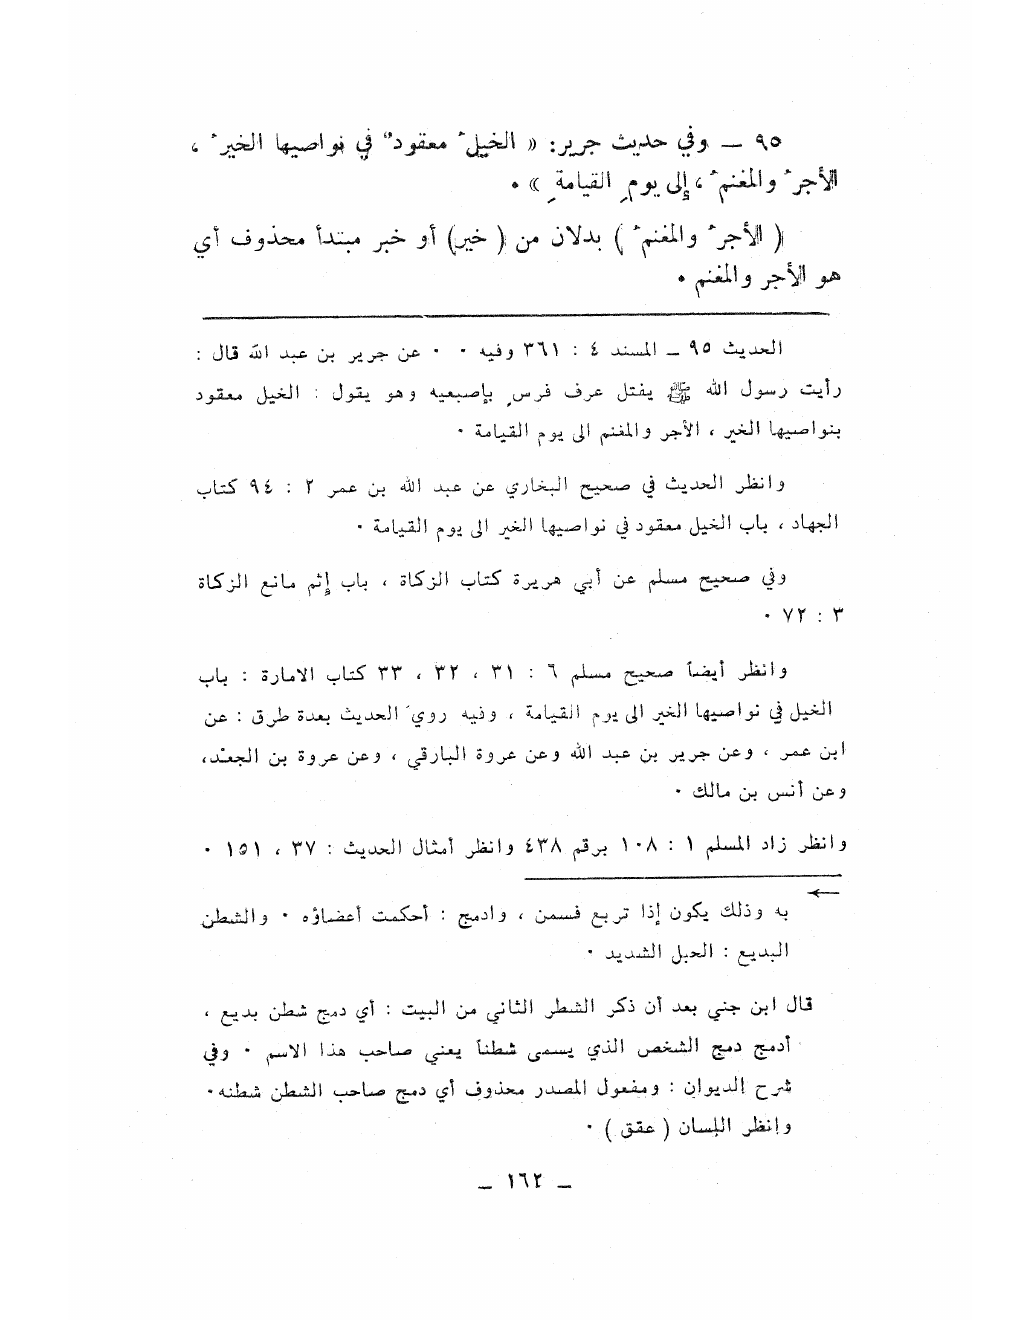 ٩٥ ــ وفي حديث جرير: « الخيلُ معقودٌ في نواصيها الخيرُ ،
الأجرُ والمغنمُ ، إلى يومِ القيامةِ » ٠
( الأجرُ والمغنمُ ) بدلان من ( خير) أو خبر مبتدأ محذوف أي
هو الأجر والمغنم ٠
الحديث ٩٥ ــ المسند ٤ : ٣٦١ وفيه ٠ ٠ عن جرير بن عبد الله قال :
رأيت رسول الله ﷺ يفتل عرف فرسٍ بإصبعيه وهو يقول : الخيل معقود
بنواصيها الخير ، الأجر والمغنم الى يوم القيامة ٠
وانظر الحديث في صحيح البخاري عن عبد الله بن عمر ٢ : ٩٤ كتاب
الجهاد ، باب الخيل معقود في نواصيها الخير الى يوم القيامة ٠
وفي صحيح مسلم عن أبي هريرة كتاب الزكاة ، باب إثم مانع الزكاة
٣ : ٧٢ ٠
وانظر أيضاً صحيح مسلم ٦ : ٣١ ، ٣٢ ، ٣٣ كتاب الامارة : باب
الخيل في نواصيها الخير الى يوم القيامة ، وفيه رويَ الحديث بعدة طرق : عن
ابن عمر ، وعن جرير بن عبد الله وعن عروة البارقي ، وعن عروة بن الجعْد،
وعن أنس بن مالك ٠
وانظر زاد المسلم ١ : ١٠٨ برقم ٤٣٨ وانظر أمثال الحديث : ٣٧ ، ١٥١ ٠
←
به وذلك يكون إذا تربع فسمن ، وادمج : أحكمت أعضاؤه ٠ والشطن
البديع : الحبل الشديد ٠
قال ابن جني بعد أن ذكر الشطر الثاني من البيت : أي دمج شطن بديع ،
أدمج دمج الشخص الذي يسمى شطناً يعني صاحب هذا الاسم ٠ وفي
شرح الديوان : ومفعول المصدر محذوف أي دمج صاحب الشطن شطنه٠
وانظر اللسان ( عقق ) ٠
ــ ١٦٢ ــ